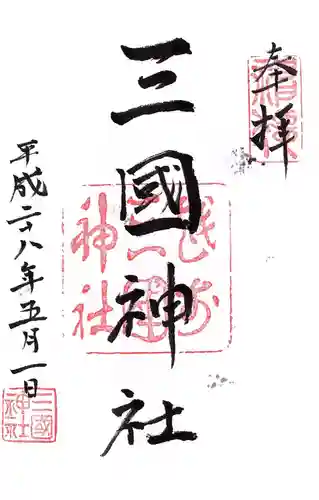 奉拝
三國神社
越前
三国
神社
平成二十八年五月一日
三國
神社